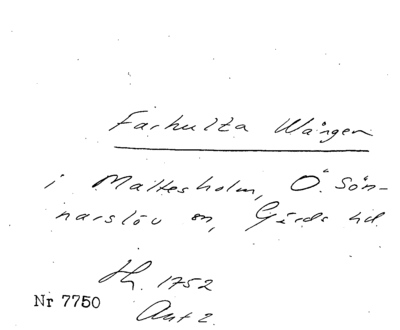 Farhulta Wången
i Maltesholm, Ö. Sön-
narslöv sn, Gärds hd.
Jh. 1752
Nr 7750
Akt 2.